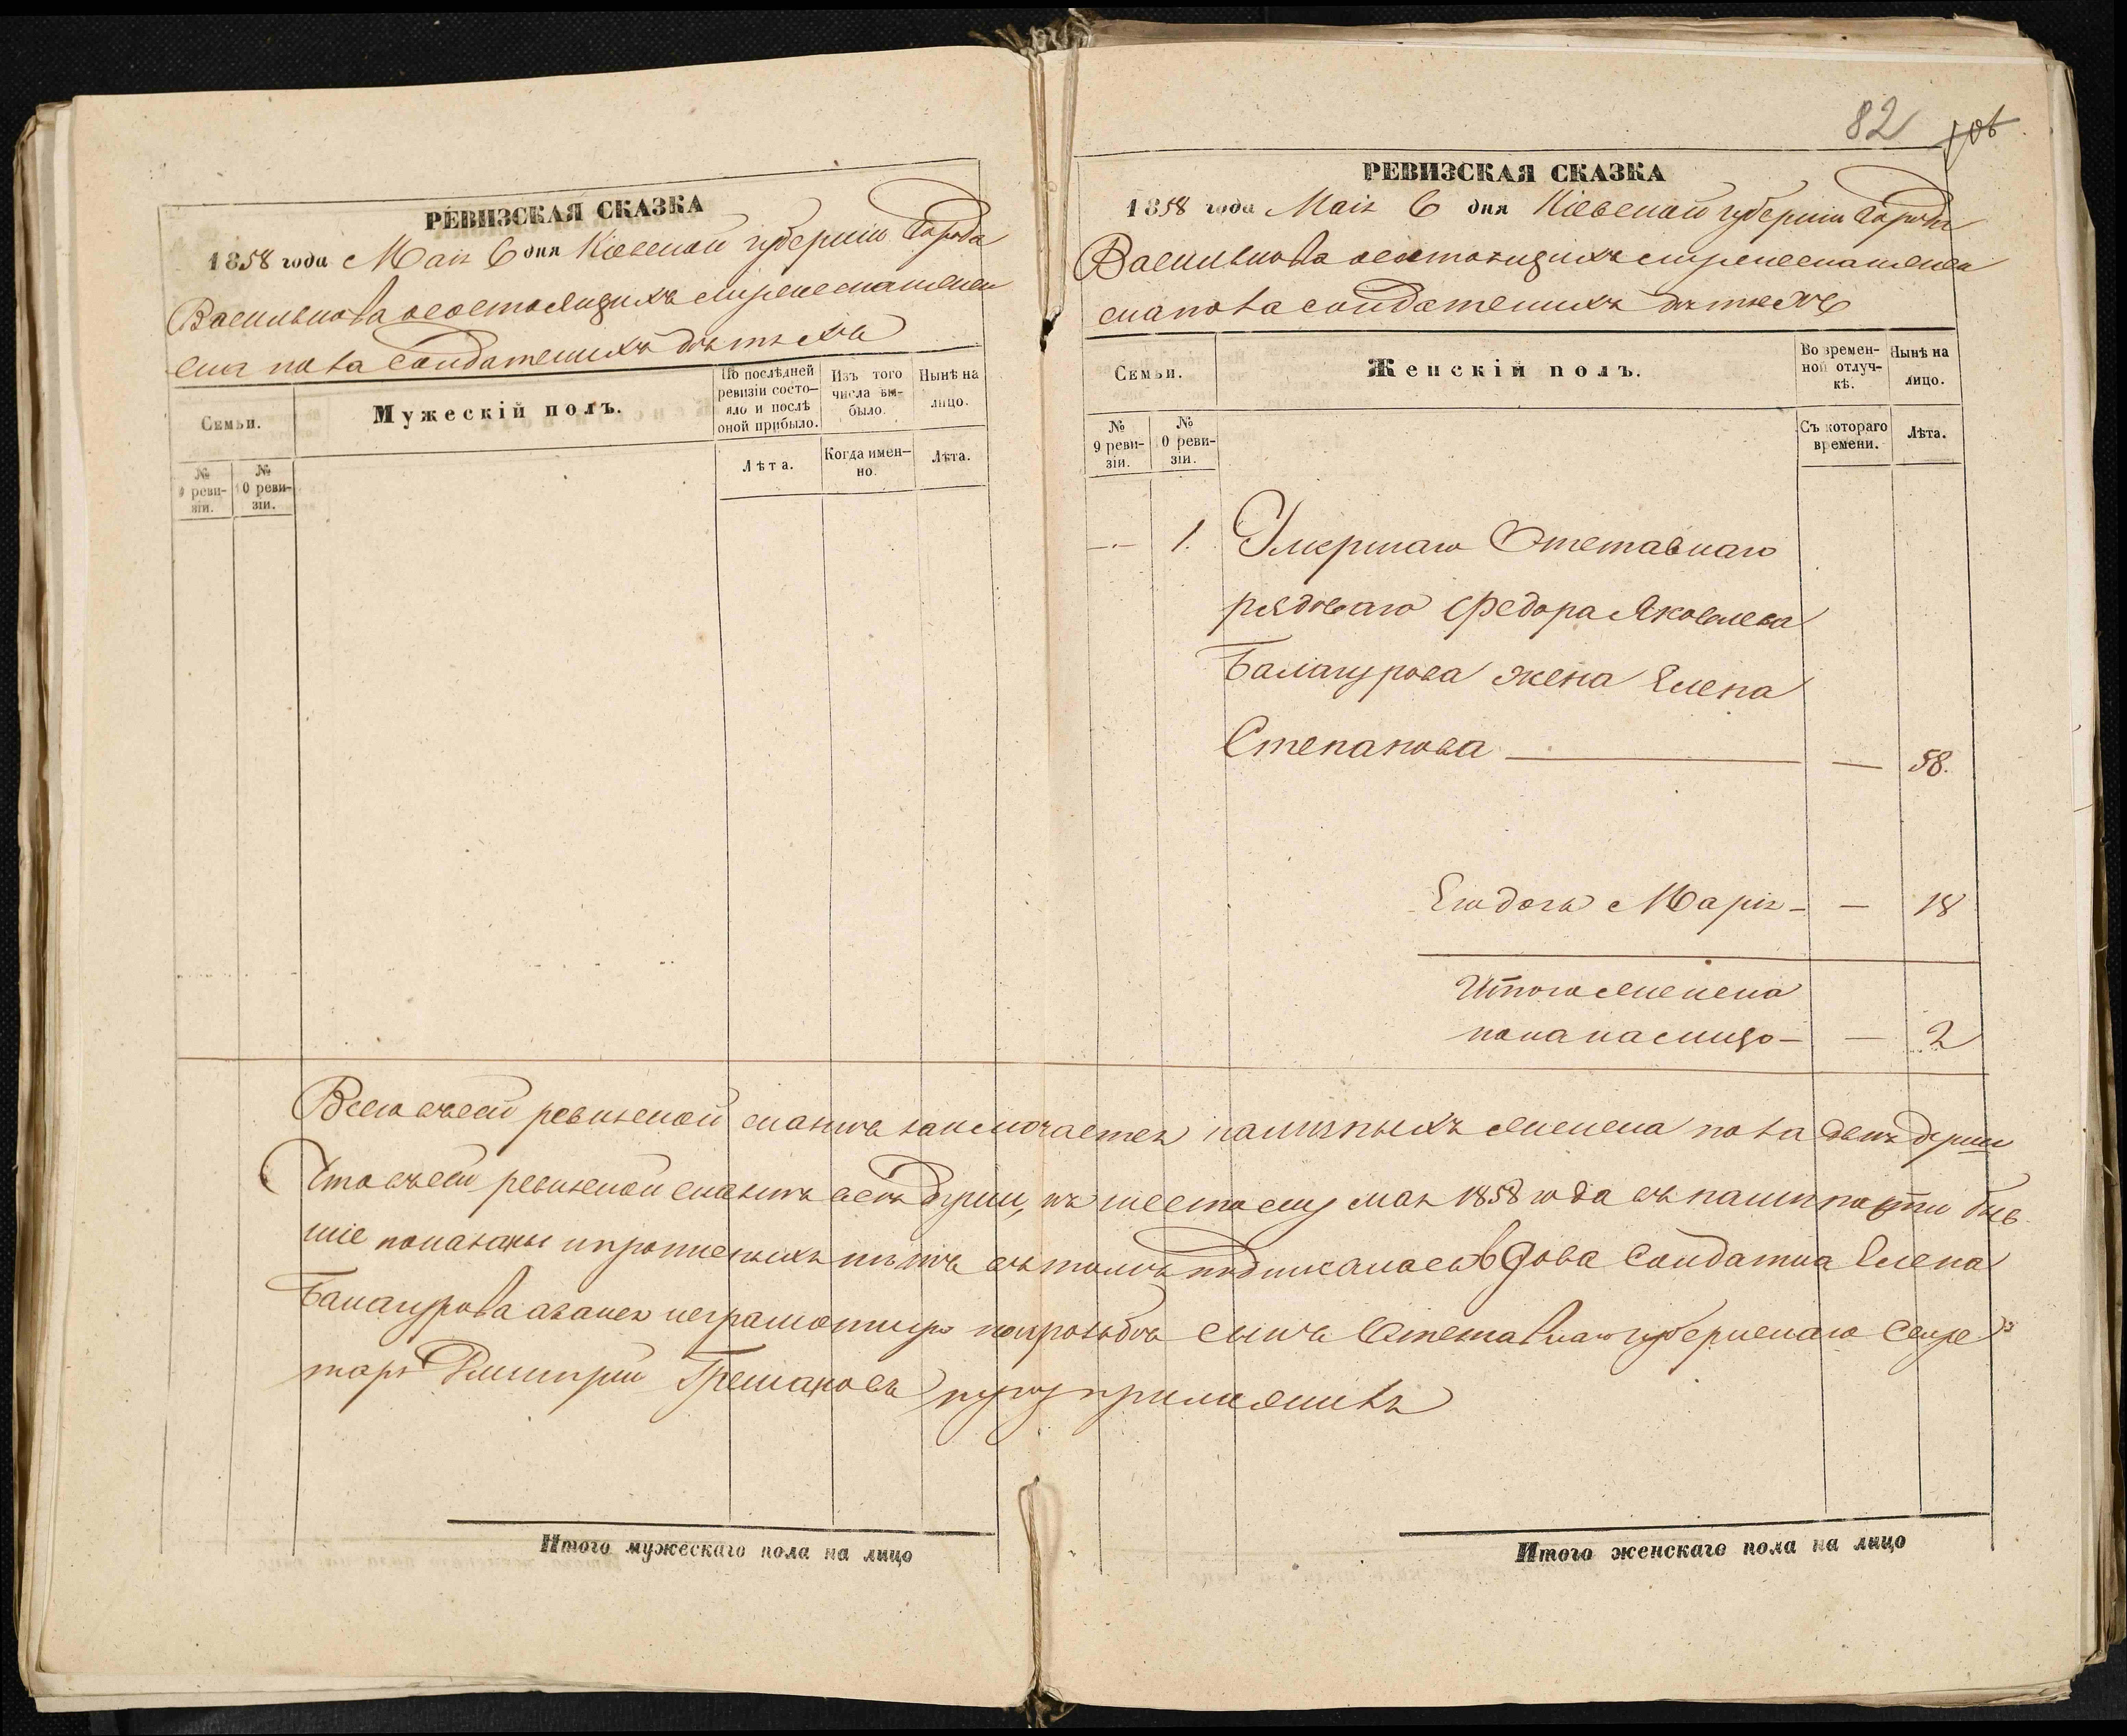 РЕВИЗСКАЯ СКАЗКА
1858 года Маія 6 дня Кіевской губерніи города
Василькова о состоящихъ мужеска и женска
пола солдатскихъ дѣтяхъ
Семьи.
Мужескій полъ.
По послѣдней ревизіи состояло и послѣ оной прибыло.
Изъ того числа выбыло.
Нынѣ на лицо.
№ 9 ревизіи.
№ 10 ревизіи.
Лѣта.
Когда именно.
Лѣта.
Итого мужескаго пола на лицо
82 106
РЕВИЗСКАЯ СКАЗКА
1858 года Маія 6 дня Кіевской губерніи города
Василькова о состоящихъ
пола солдатскихъ дѣтяхъ
Семьи.
Женскій полъ.
Во временной отлучкѣ.
Нынѣ на лицо.
№ 9 ревизіи.
№ 10 ревизіи.
Съ котораго времени.
Лѣта.
— 1. Умершаго Отставнаго
рядоваго Федора Яковлева
Балагурова жена Елена
Степанова — — 58.
Ея дочь Марія — — 18
Итого женска
пола на лицо — — 2
Всего въ сей ревизской сказкѣ заключается наличныхъ женска пола двѣ души
Что въ сей ревизской сказкѣ всѣ души, къ шестому мая 1858 года въ наличности быв-
шіе показаны и пропущенныхъ нѣтъ въ томъ подписалась вдова Солдатка Елена
Балагурова а за нея неграмотную по просьбѣ Отставнаго губернскаго Секре-
таря Дмитрій руку приложилъ
Итого женскаго пола на лицо